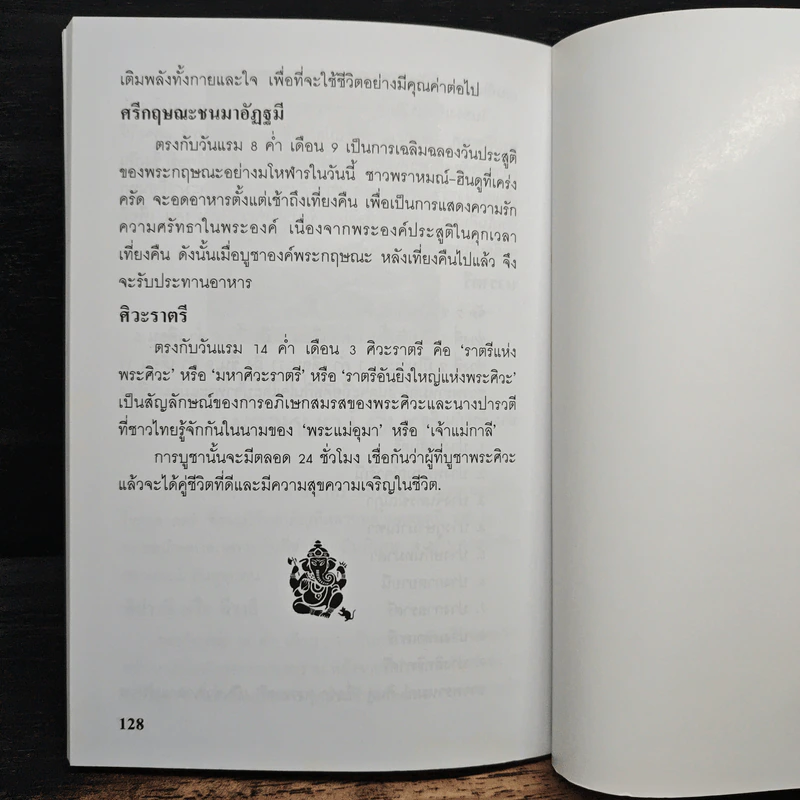 เติมพลังทั้งกายและใจ เพื่อที่จะใช้ชีวิตอย่างมีคุณค่าต่อไป
ศรีกฤษณะชนมาอัฏฐมี
ตรงกับวันแรม 8 ค่ำ เดือน 9 เป็นการเฉลิมฉลองวันประสูติ
ของพระกฤษณะอย่างมโหฬารในวันนี้ ชาวพราหมณ์-ฮินดูที่เคร่ง
ครัด จะอดอาหารตั้งแต่เช้าถึงเที่ยงคืน เพื่อเป็นการแสดงความรัก
ความศรัทธาในพระองค์ เนื่องจากพระองค์ประสูติในคุกเวลา
เที่ยงคืน ดังนั้นเมื่อบูชาองค์พระกฤษณะ หลังเที่ยงคืนไปแล้ว จึง
จะรับประทานอาหาร
ศิวะราตรี
ตรงกับวันแรม 14 ค่ำ เดือน 3 ศิวะราตรี คือ ‘ราตรีแห่ง
พระศิวะ’ หรือ ‘มหาศิวะราตรี’ หรือ ‘ราตรีอันยิ่งใหญ่แห่งพระศิวะ’
เป็นสัญลักษณ์ของการอภิเษกสมรสของพระศิวะและนางปารวตี
ที่ชาวไทยรู้จักกันในนามของ ‘พระแม่อุมา’ หรือ ‘เจ้าแม่กาลี’
การบูชานั้นจะมีตลอด 24 ชั่วโมง เชื่อกันว่าผู้ที่บูชาพระศิวะ
แล้วจะได้คู่ชีวิตที่ดีและมีความสุขความเจริญในชีวิต.
128